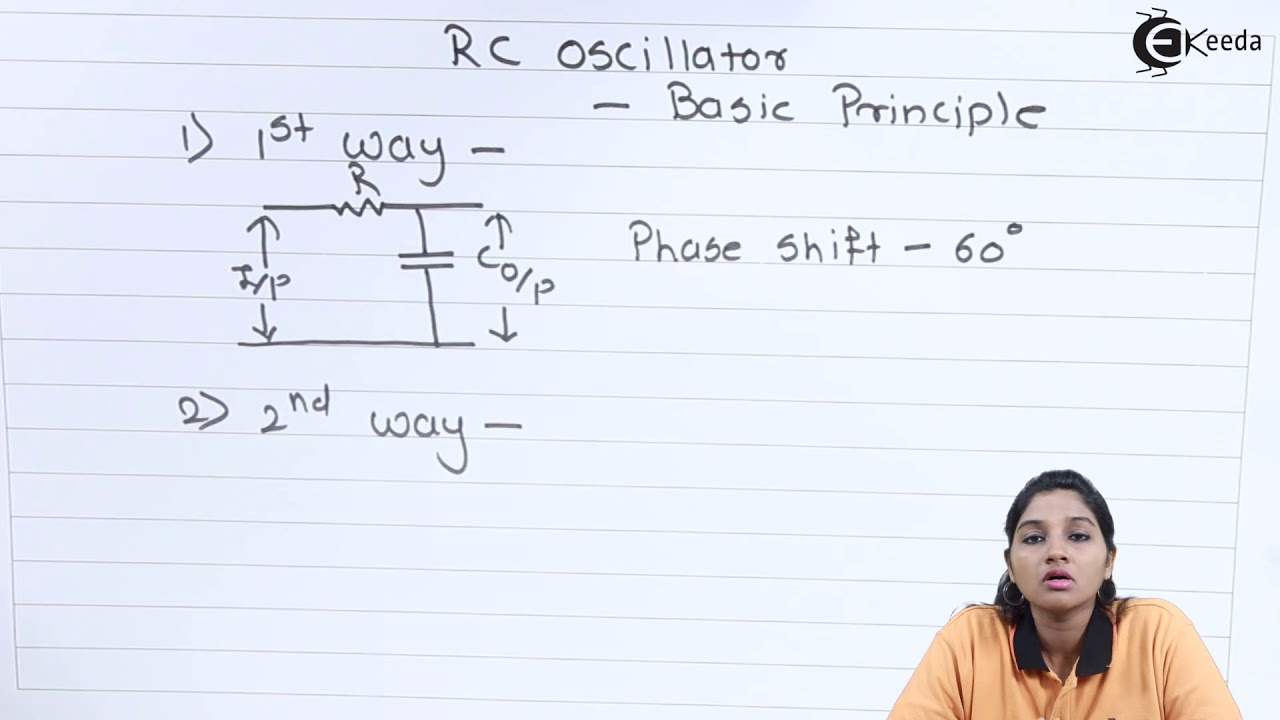 EKeeda
RC Oscillator
- Basic Principle
1) 1st way -
R
I/P
C
O/P
Phase shift - 60°
2) 2nd way -